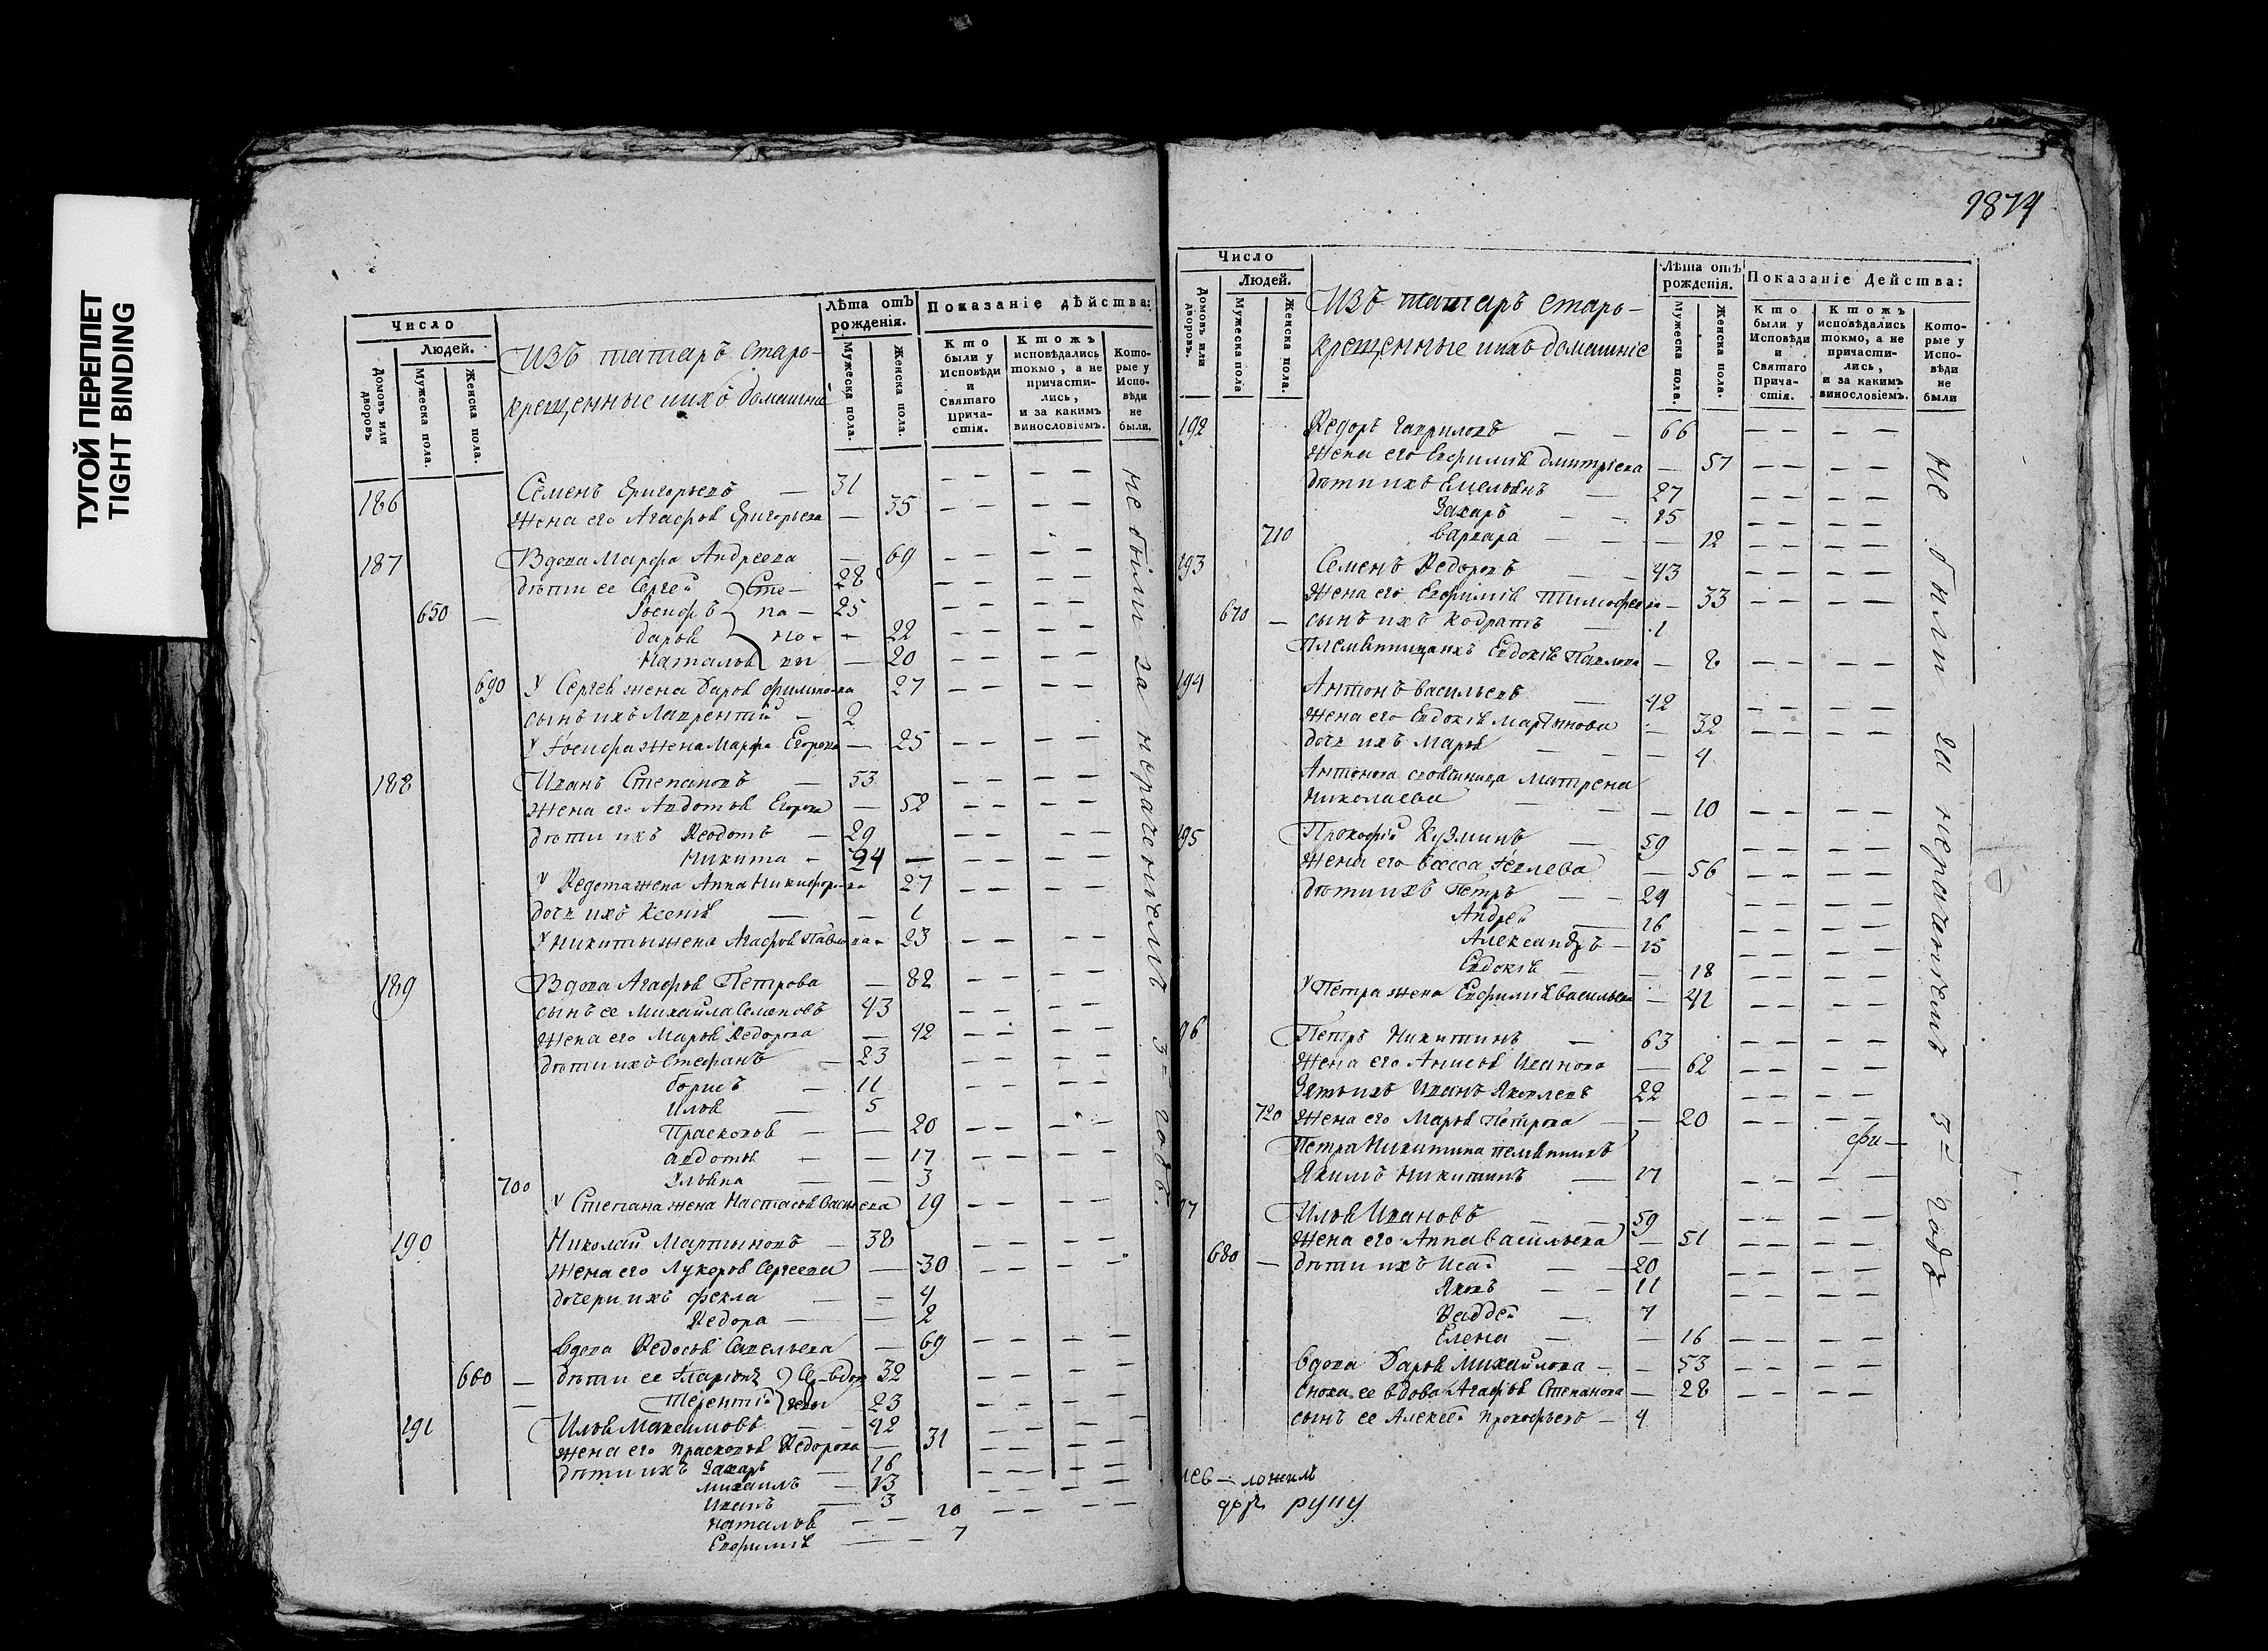 ТУГОЙ ПЕРЕПЛЕТ
TIGHT BINDING
Число
Людей.
Домовъ или дворовъ
Мужеска пола.
Женска пола.
Изъ татаръ старо-
крещенные и ихъ домашніе
Лѣта отъ рожденія.
Мужеска пола.
Женска пола.
Показаніе дѣйства:
Кто были у Исповѣди и Святаго Прича-стія.
Ктожъ исповѣдались токмо, а не причасти-лись, и за какимъ винословіемъ.
Кото-рые у Испо-вѣди не были.
186 Семенъ Григорьевъ — 31
жена его Агафья Григорьева — 35
187 Вдова Марфа Андреева — 69
дѣти ее Сергей Сте- 28
650 — Іосифъ па- 25
Дарья но- 22
Наталья вы — 20
690 У Сергея жена Дарья Филипова 27
сынъ ихъ Лаврентій — 2
У Іосифа жена Марфа Егорова — 25
188 Иванъ Степановъ — 53
жена его Авдотья Егорова — 52
дѣти ихъ Ѳеодотъ — 29
Никита — 24 —
У Ѳедота жена Анна Никифорова 27
дочь ихъ Ксенія — — 1
У Никиты жена Агафья Павлова — 23
189 Вдова Агафья Петрова — 82
сынъ ее Михайла Семеновъ 43
жена его Марья Ѳедорова — 42
дѣти ихъ Стефанъ — 23
Борисъ — 11
Илья — 5
Прасковья — — 20
Авдотья — — 17
700 Ульяна — — 3
У Степана жена Настасья Васильева 19
190 Николай Мартыновъ — 38
жена его Лукерья Сергеева — 30
дочери ихъ Фекла — — 4
Ѳедора — — 2
вдова Ѳедосья Савельева — 69
660 — дѣти ее Иларіонъ 32
— Терентій 23
191 Илья Максимовъ — 42
жена его Прасковья Ѳедорова — 31
дѣти ихъ Захаръ — 16
Михаилъ — 13
Иванъ — 3
Наталья — — 10
Евфимія — — 7
не были за нерачениемъ 3й годъ.
1874
Число
Людей.
Домовъ или дворовъ.
Мужеска пола
Женска пола.
Изъ татаръ старо-
крещенные и ихъ домашніе
Лѣта отъ рожденія.
Мужеска пола.
Женска пола.
Показаніе Действа:
Кто были у Исповѣди и Святаго Прича-стія.
Ктожъ исповѣдались токмо, а не причасти-лись, и за какимъ винословіемъ.
Кото-рые у Испо-вѣди не были
192 Ѳедоръ Гавриловъ — — 66
жена его Евфимія Дмитріева — 57
дѣти ихъ Емельянъ — 27
Захаръ — — 15
710 Варвара — — — 12
193 Семенъ Ѳедоровъ — — 43
жена его Евфимія Тимофеева — 33
670 — сынъ ихъ Кодратъ — 1
Племянница ихъ Евдокія Павлова —
194 Антонъ Васильевъ — 42
жена его Евдокія Мартынова — 32
дочь ихъ Марья — — 4
Антонова Матрена
Николаева — — — 10
195 Прокофій Кузминъ — 59
жена его Васса — 56
дѣти ихъ Петръ — — 24
Андрей — 16
Александръ — 15
Евдокія — — 18
У Петра жена Евфимія Васильева —
96 Петръ Никитинъ — 63
жена его Анисья Иванова — 62
Зять ихъ Иванъ Яковлевъ 22
720 жена его Марья Петрова — — 20
Петра Никитина племянникъ
Якимъ Никитинъ — 17
97 Илья Ивановъ — — 59
жена его Анна Васильева — 51
680 — дѣти ихъ Исай — — 20
Яковъ — — 11
Ѳаддей — 7
Елена — — 16
вдова Дарья Михайлова — — 53
сноха ее вдова Агафья Степанова — 28
сынъ ее Алексей Прокофьевъ — 4
не были за нерачениемъ 3й годъ
фи—
руку